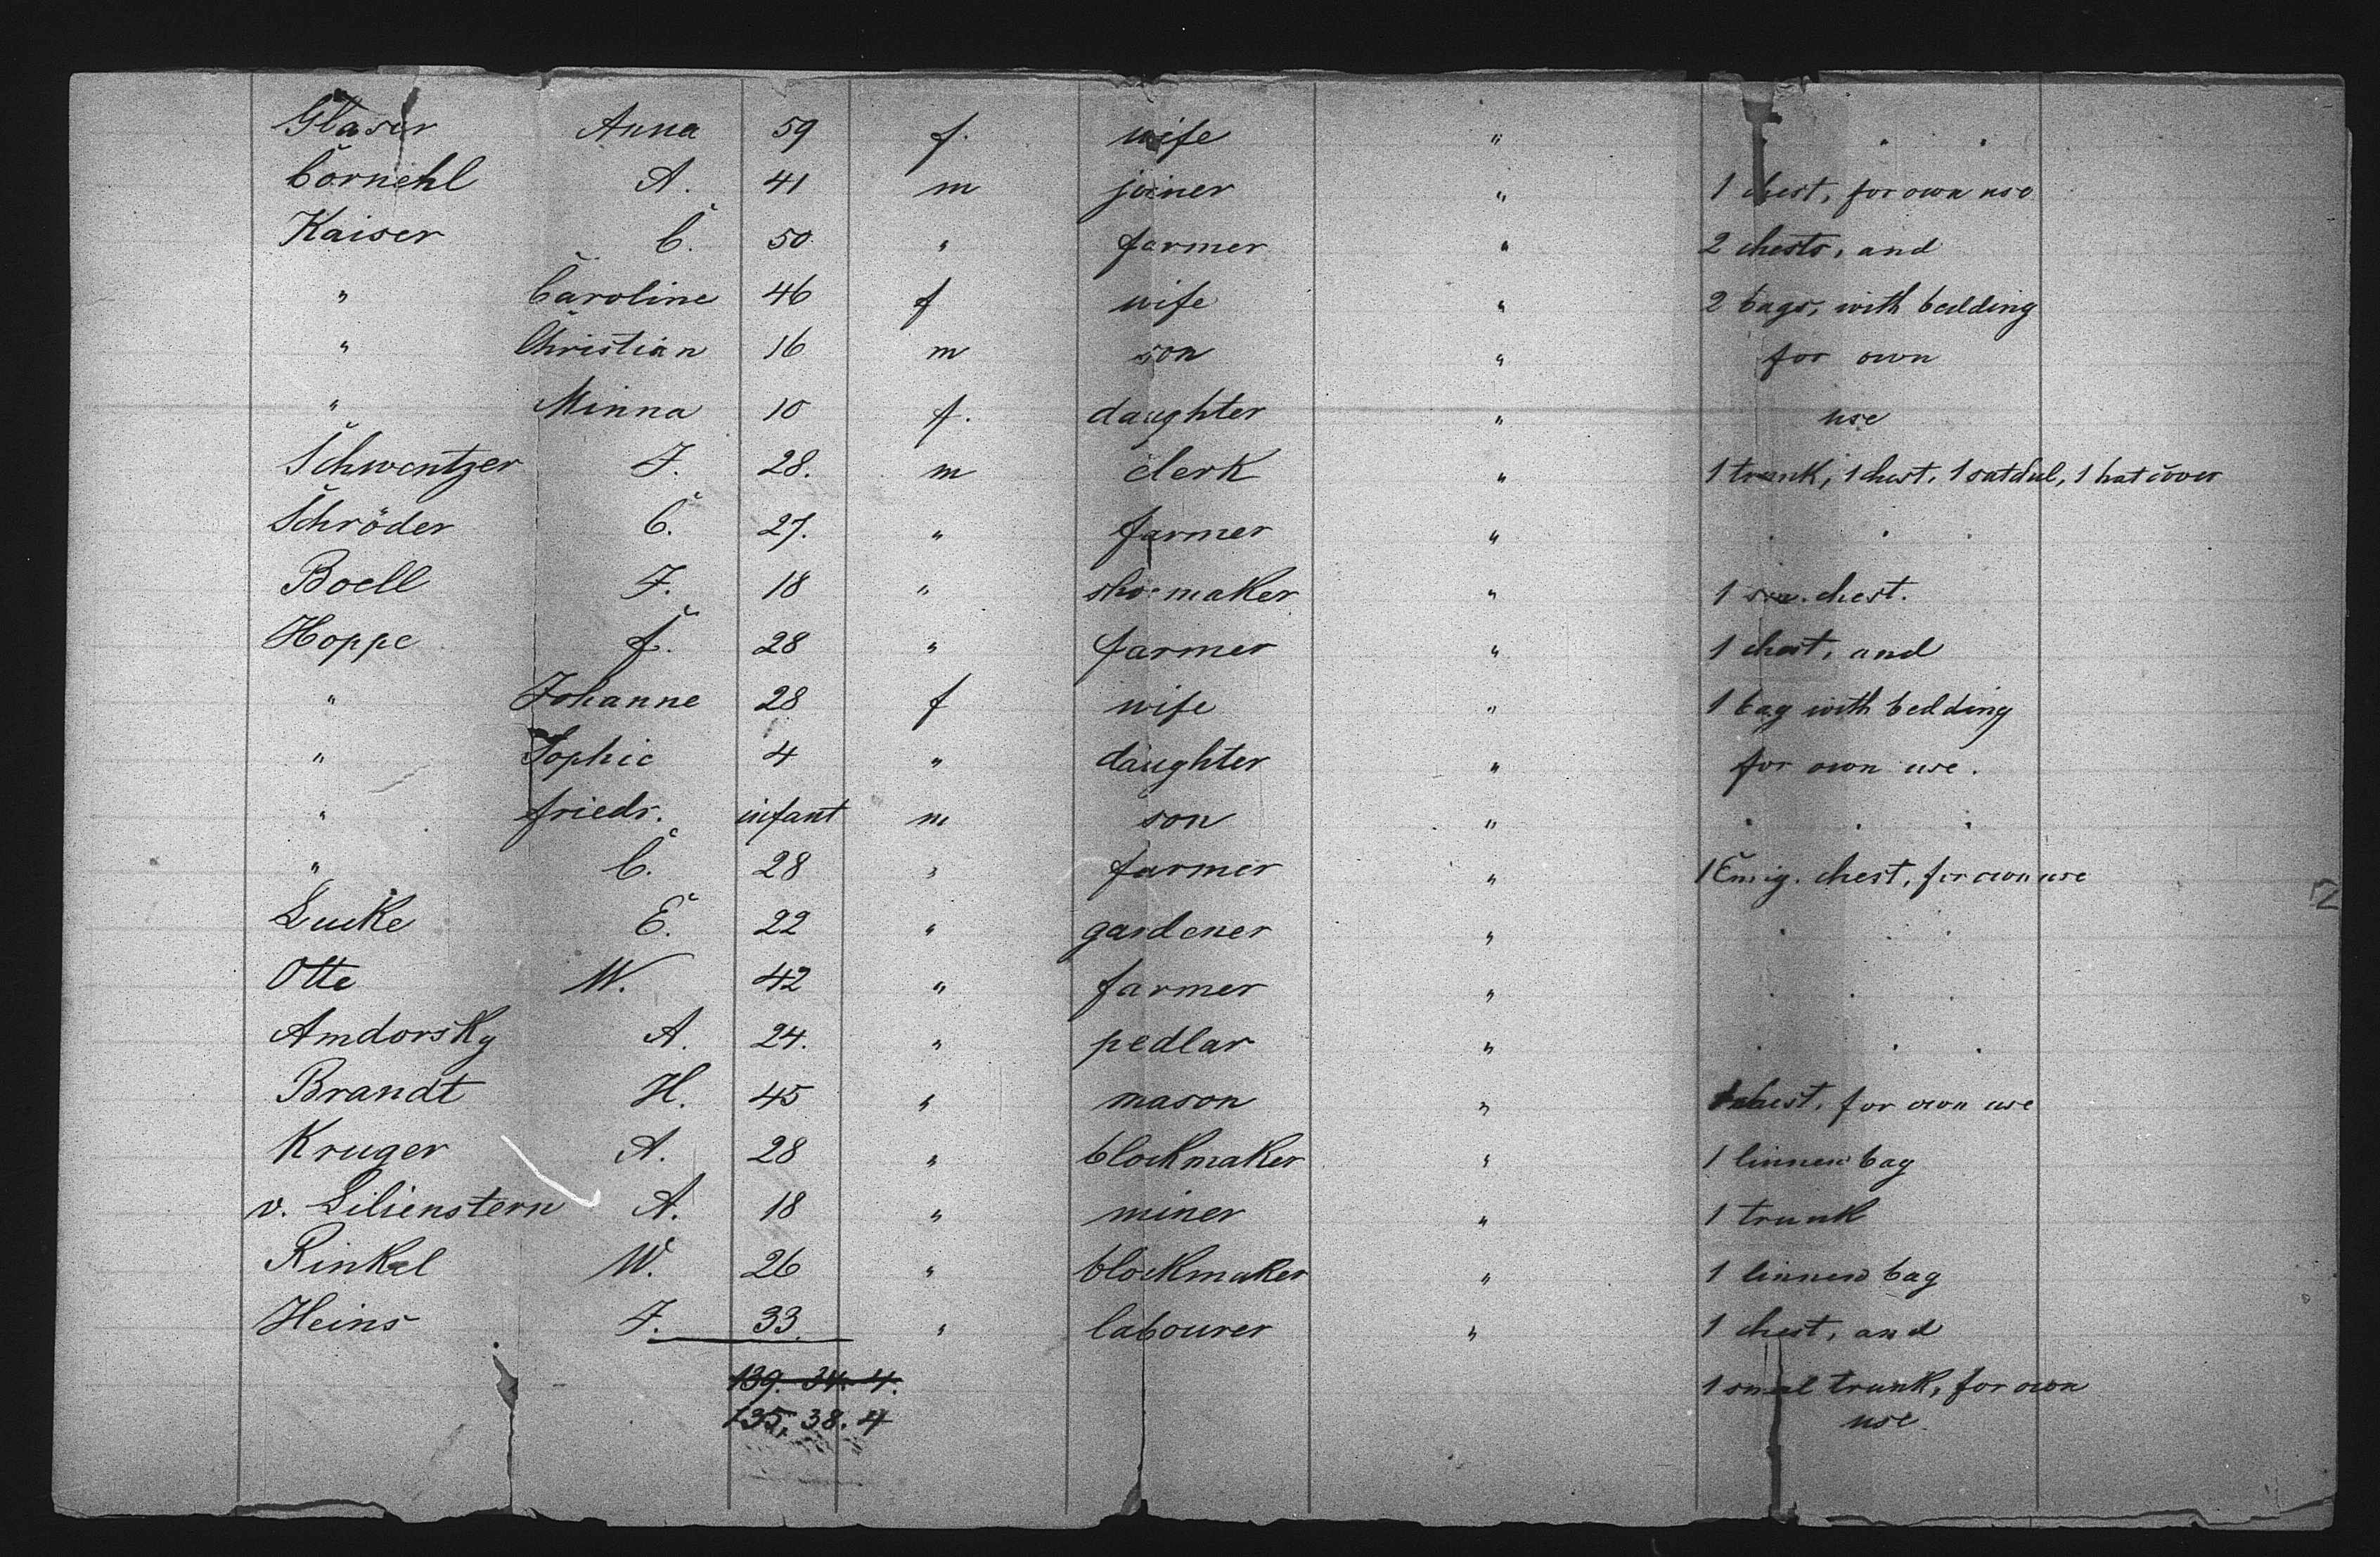 Glaser Anna 59 f. wife "
Cornehl A. 41 m joiner " 1 chest, for own use
Kaiser C. 50 " farmer " 2 chests, and
" Caroline 46 f wife " 2 bags, with bedding
" Christian 16 m son " for own
" Minna 10 f. daughter " use
Schwentzer F. 28. m clerk " 1 trunk, 1 chest, 1 satchel, 1 hat cover
Schröder C. 27. " farmer " . . .
Boell F. 18 " shoemaker " 1 chest.
Hoppe f. 28 " farmer " 1 chest, and
" Johanne 28 f wife " 1 bag with bedding
" Sophie 4 " daughter " for own use.
" friedr. infant m son " . . .
" C. 28 " farmer " 1 Emig. chest, for own use
Lucke E. 22 " gardener " . . .
Otte W. 42 " farmer " . . .
Amdorsky A. 24. " pedlar " . . .
Brandt H. 45 " mason " 1 chest, for own use
Kruger A. 28 " blockmaker " 1 linnen bag
v. Lilienstern A. 18 " miner " 1 trunk
Rinkel W. 26 " blockmaker " 1 linnen bag
Heins F. 33 " labourer " 1 chest, and
139. 34. 4. 1 small trunk, for own
135, 38. 4 use